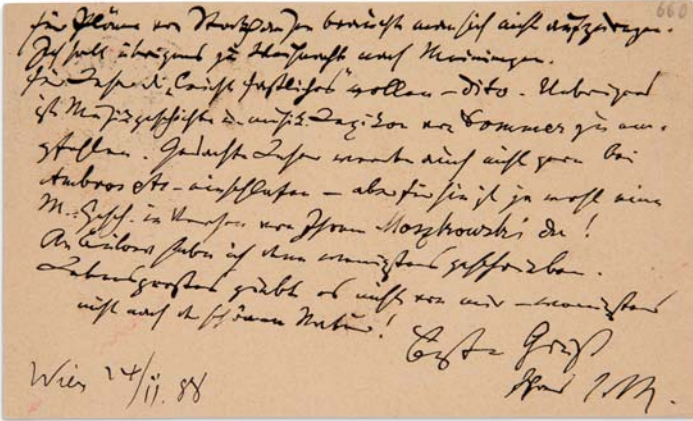 660
für Pläne von Stockhausen braucht man sich nicht aufzuregen.
Ich soll übrigens zu Weihnacht nach Meiningen.
für Leser die „leicht faßliches“ wollen – dito. Uebrigens
ist Musikgeschichte u. musik. Lexikon von Sommer zu em-
pfehlen. Gedachte Leser werden auch nicht gern bei
Ambros etc. einschlafen – aber für sie ist ja wohl eine
M.-Gesch. in Versen von Ihrem Moszkowski da!
An habe ich denn wenigstens geschrieben.
Lebensgroßes giebt es nicht von mir – wenigstens
nicht nach der schönen Natur!
Beste Grüße
Ihres J. Br.
Wien 24/11. 88